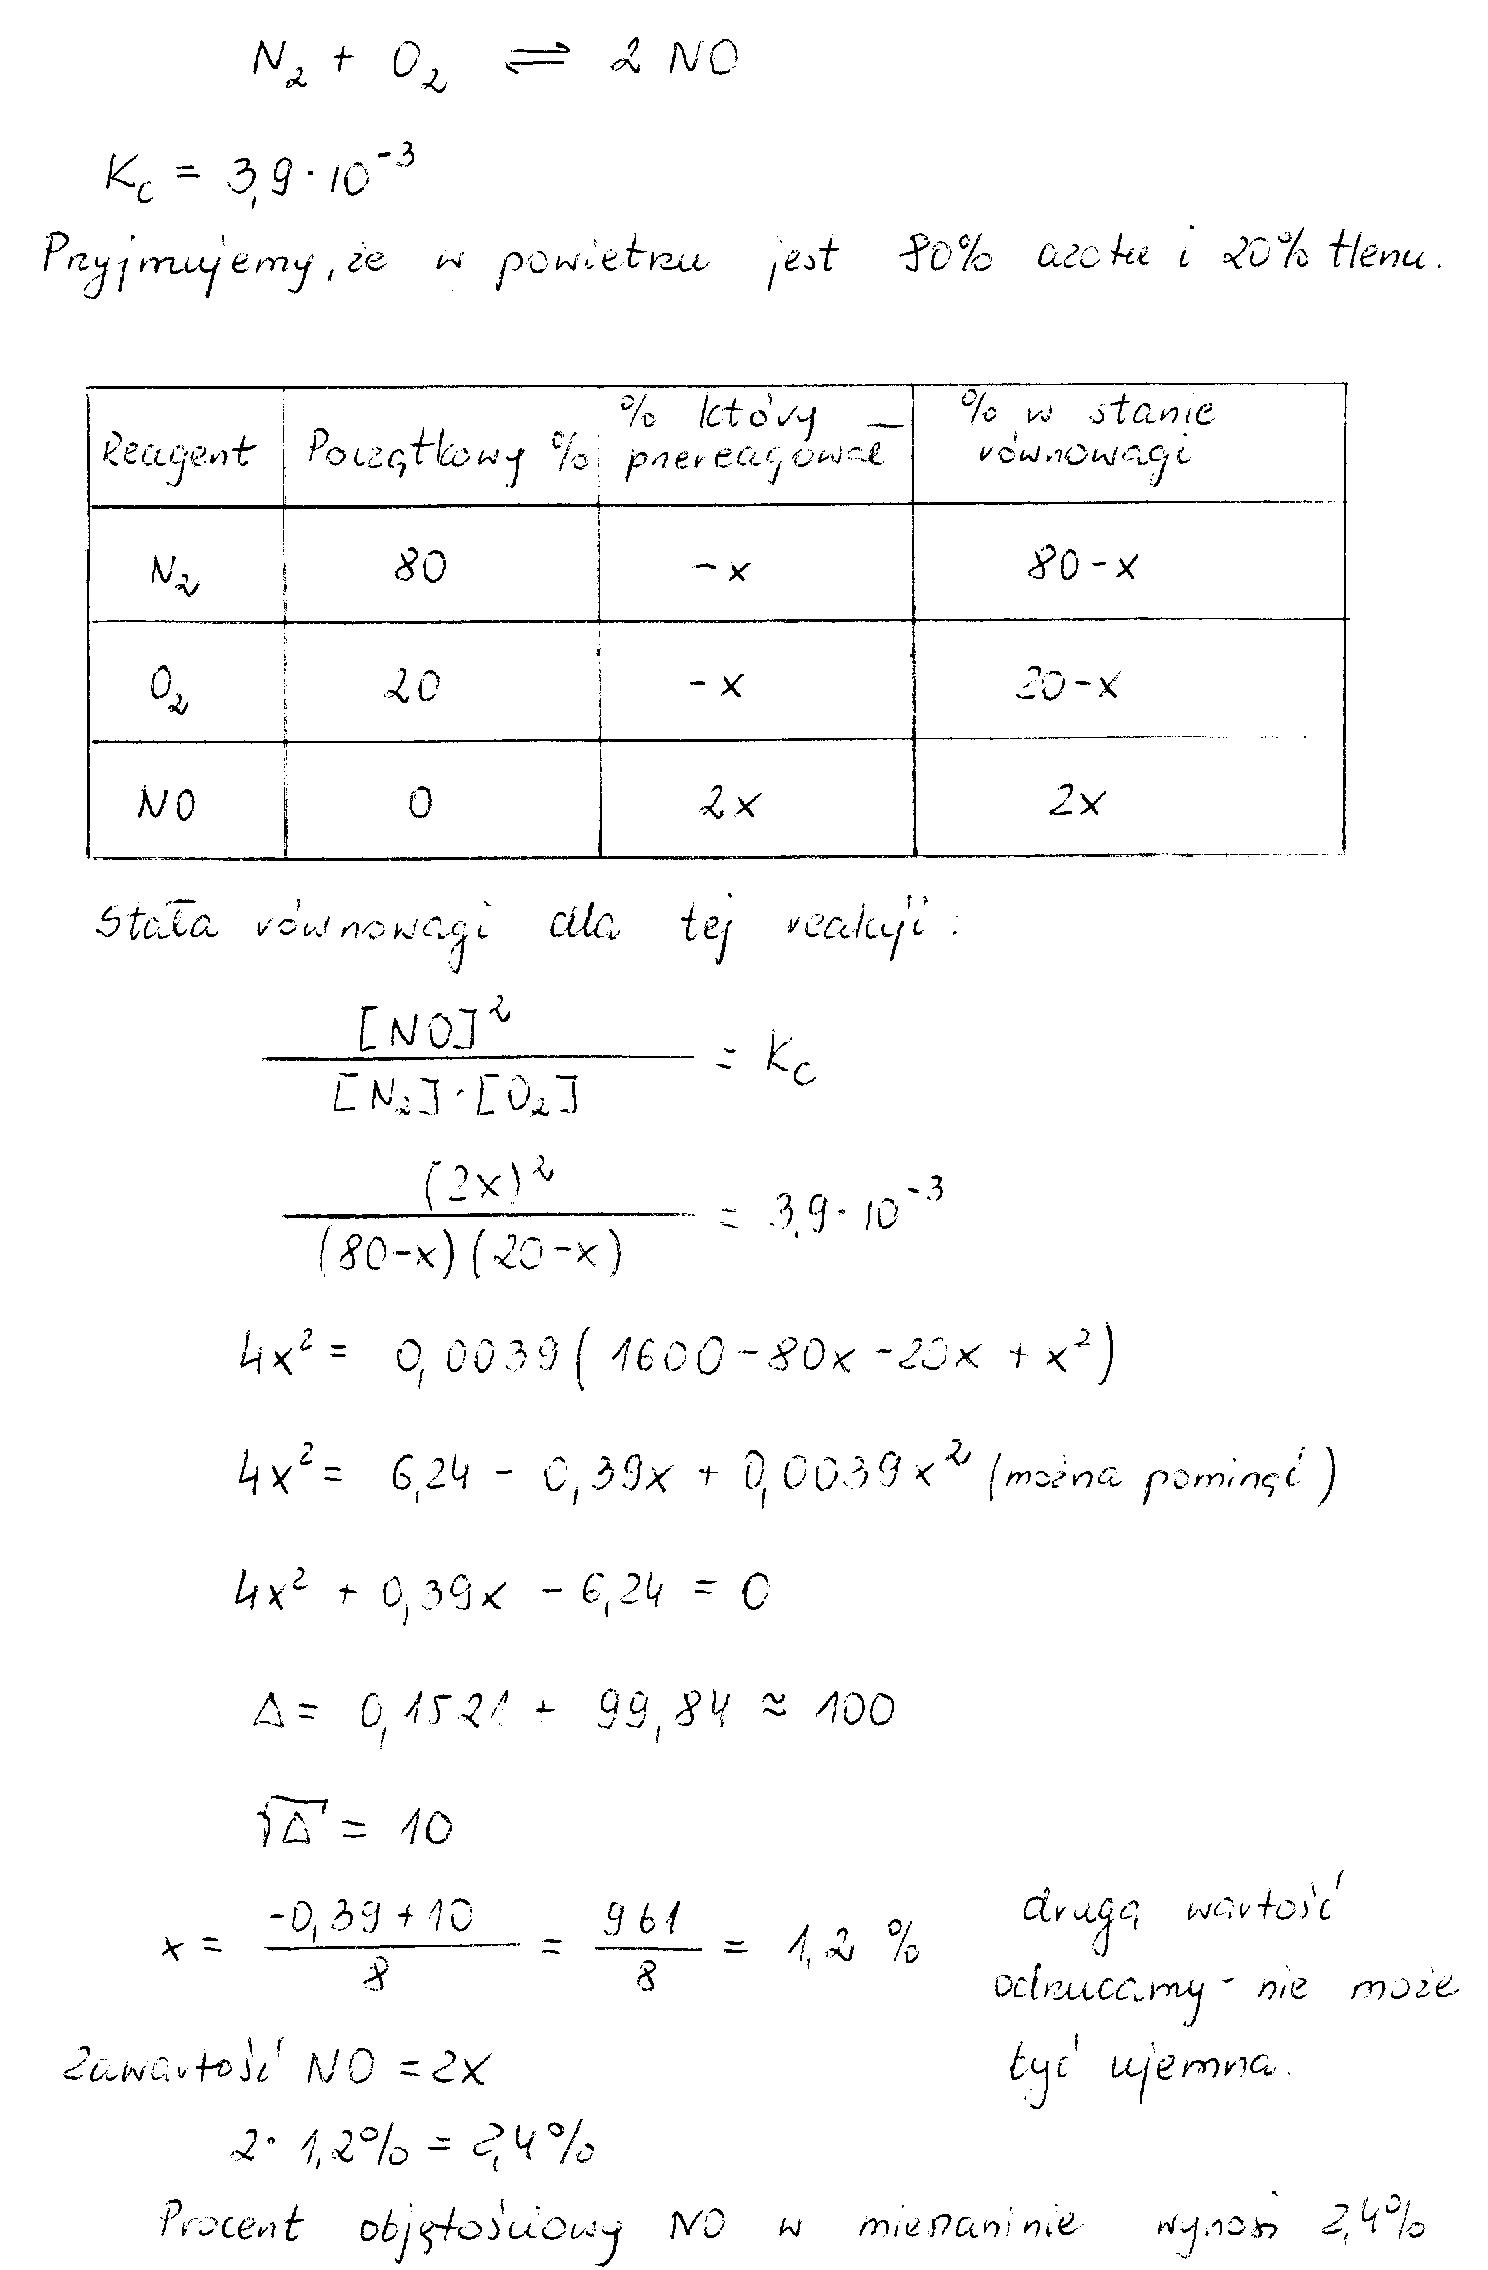 N₂ + O₂ ⇌ 2 NO
Kc = 3,9 · 10⁻³
Przyjmujemy, że w powietrzu jest 80% azotu i 20% tlenu.
Reagent | Początkowy % | % który przereagował | % w stanie równowagi
N₂ | 80 | -x | 80-x
O₂ | 20 | -x | 20-x
NO | 0 | 2x | 2x
Stała równowagi dla tej reakcji:
[NO]² / [N₂]·[O₂] = Kc
(2x)² / (80-x)(20-x) = 3,9 · 10⁻³
4x² = 0,0039 (1600 - 80x - 20x + x²)
4x² = 6,24 - 0,39x + 0,0039x² (można pominąć)
4x² + 0,39x - 6,24 = 0
Δ = 0,1521 + 99,84 ≈ 100
√Δ = 10
x = -0,39 + 10 / 8 = 961 / 8 = 1,2 %
drugą wartość
odrzucamy - nie może
być ujemna.
Zawartość NO = 2x
2 · 1,2% = 2,4%
Procent objętościowy NO w mieszaninie wynosi 2,4%